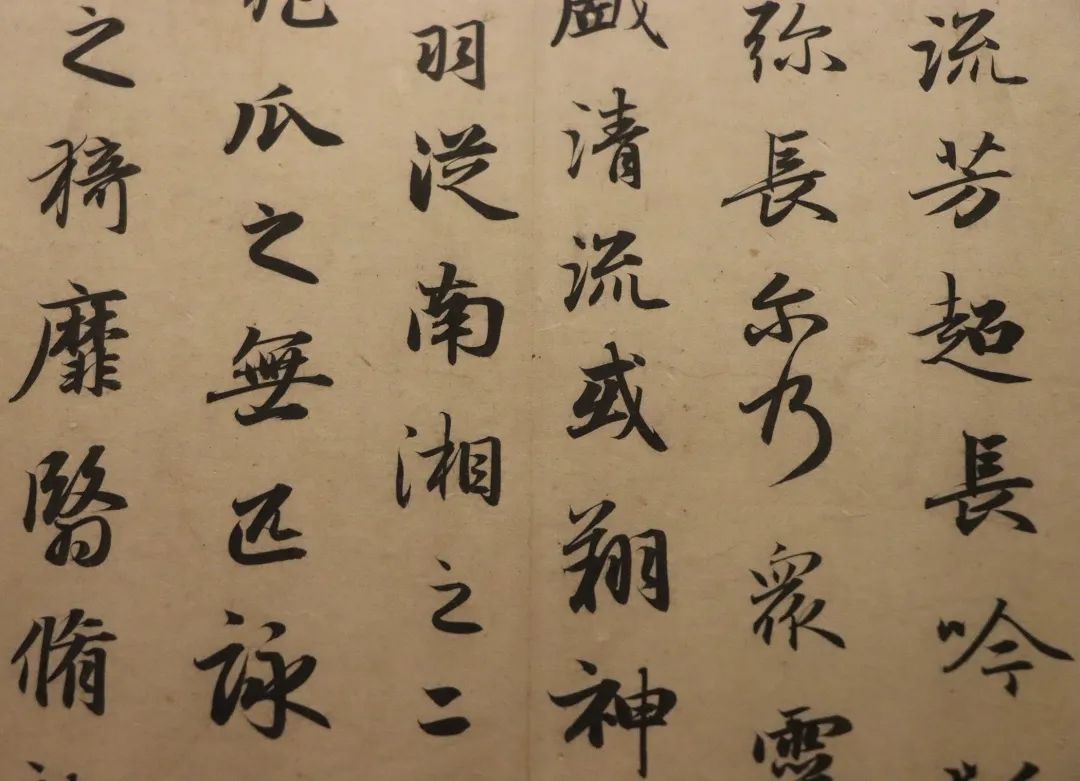 流芳超長吟
弥長尔乃衆靈
戲清流或翔神
羽従南湘之二
瓜之無匹詠
之猗靡翳脩